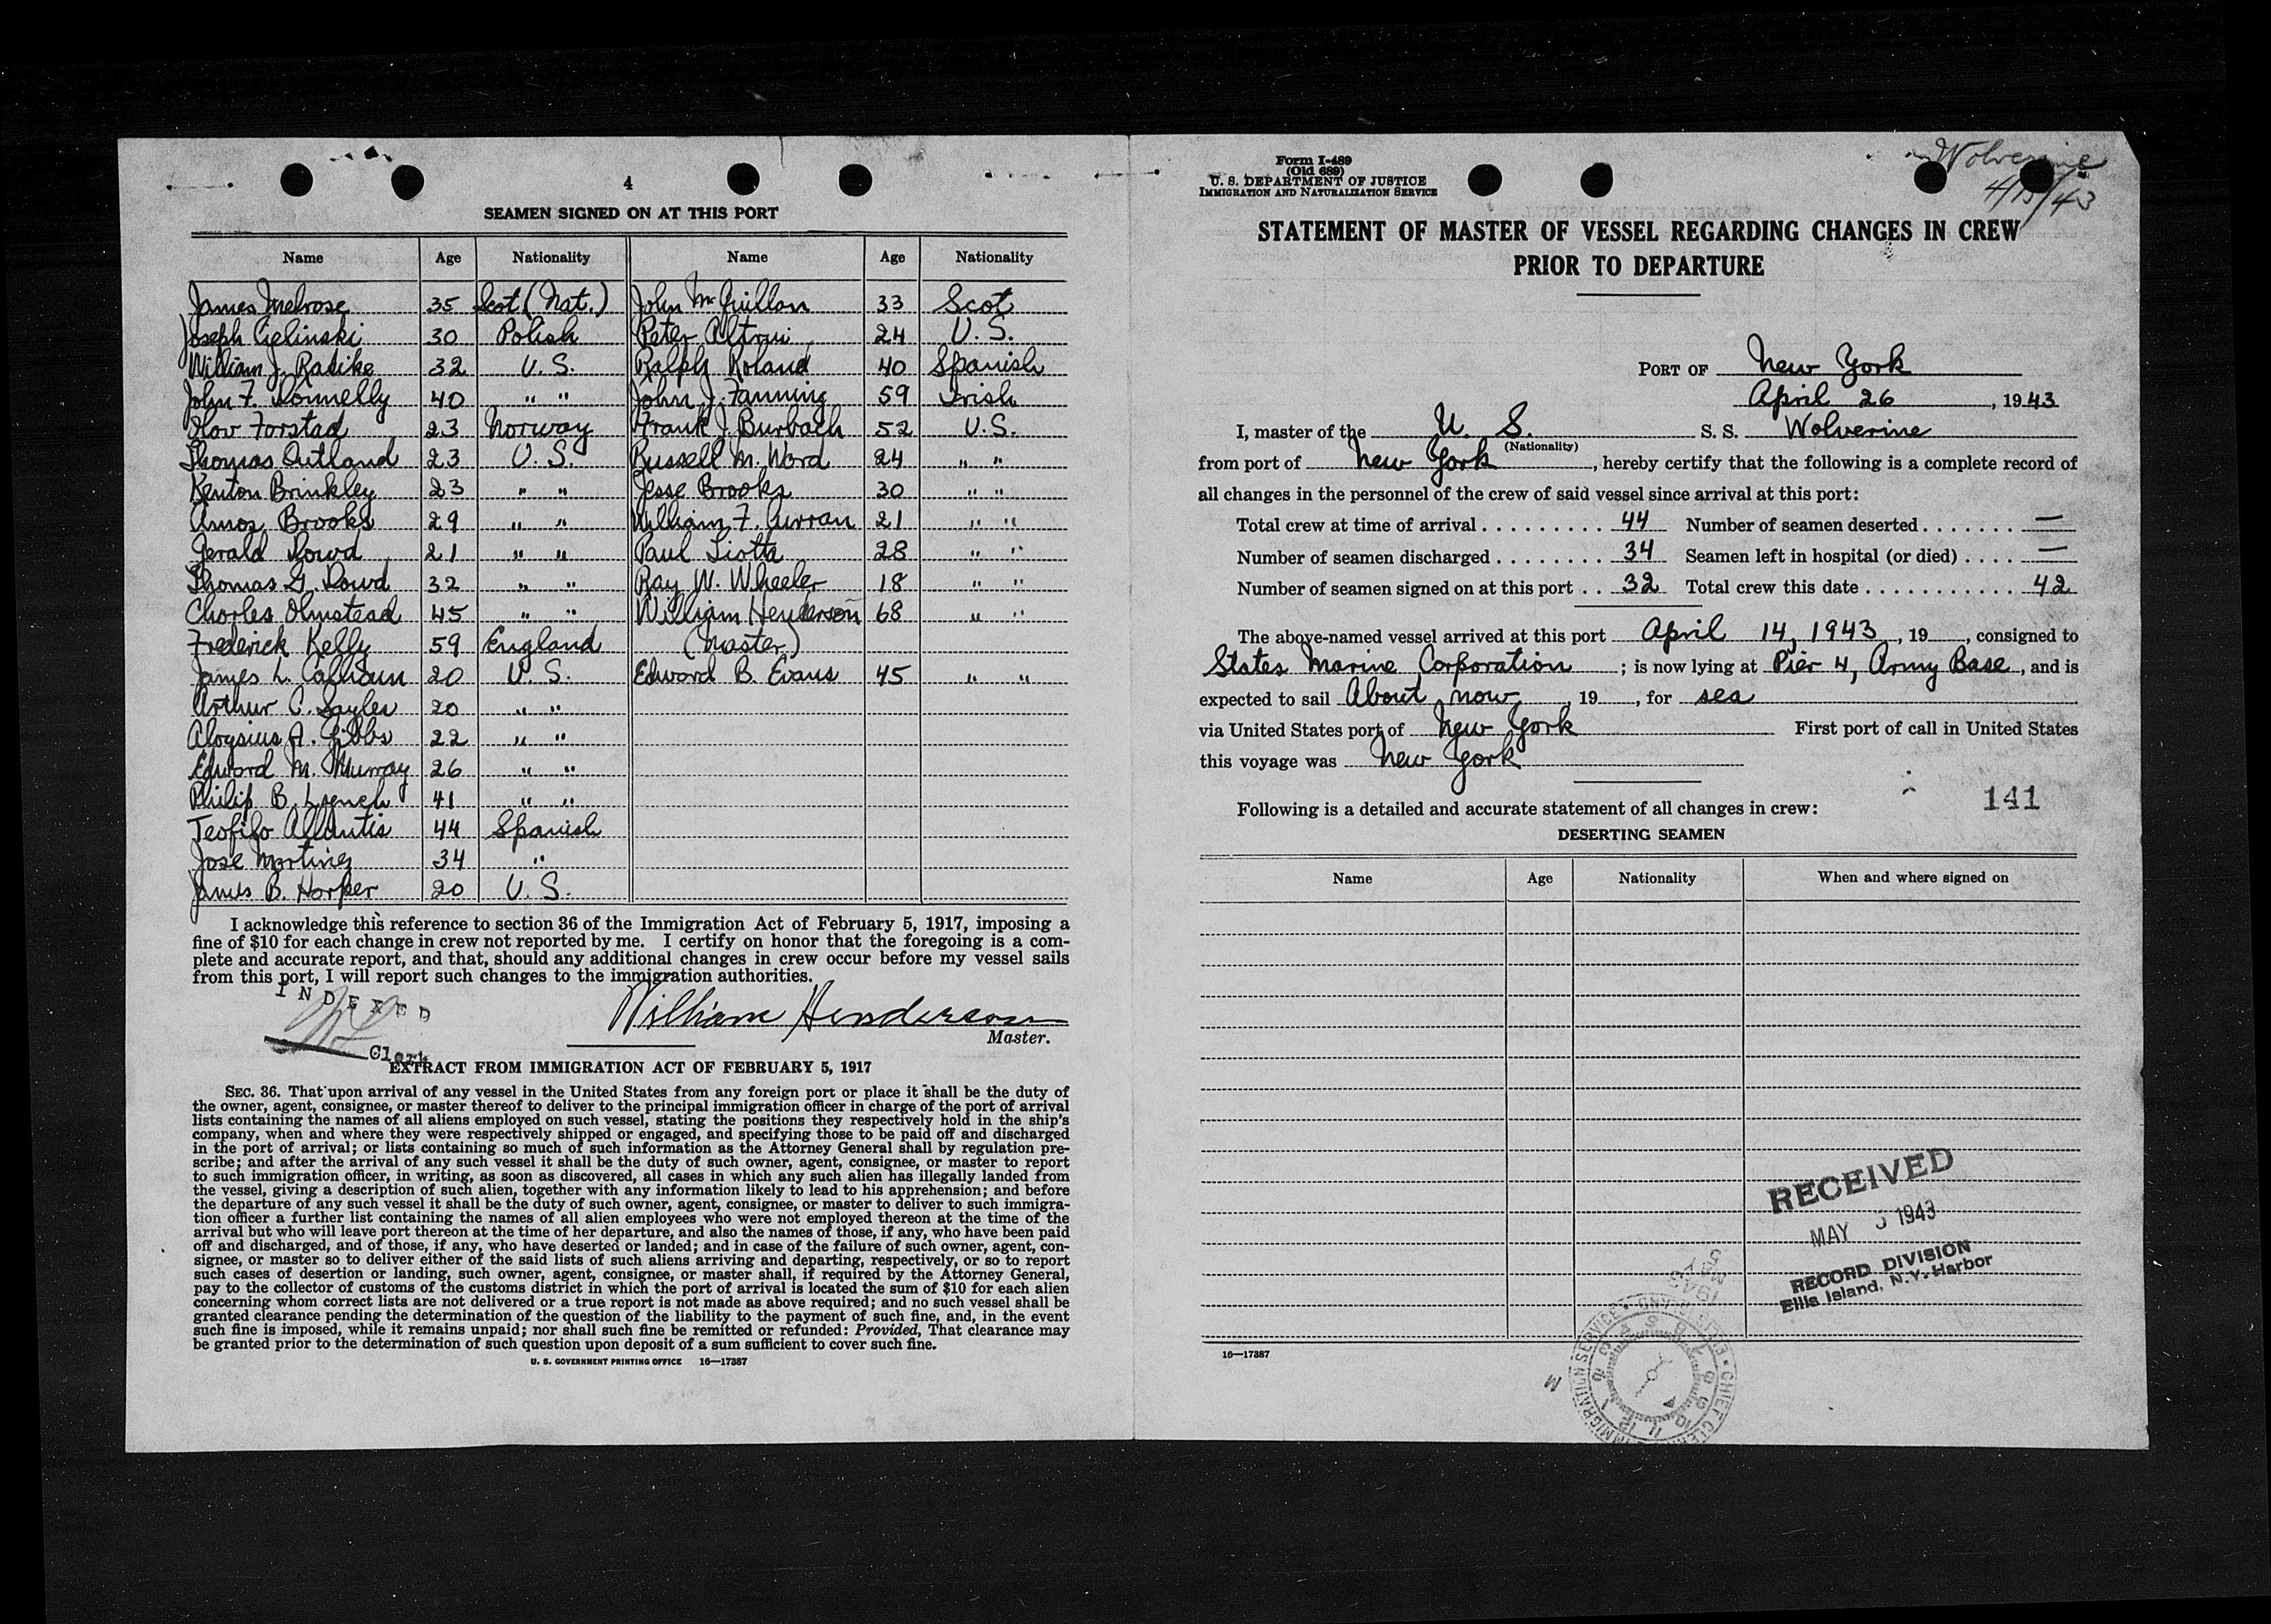 4
SEAMEN SIGNED ON AT THIS PORT
Name Age Nationality Name Age Nationality
James Melrose 35 Scot (Nat.) John McQuillan 33 Scot
Joseph Cielinski 30 Polish Peter 24 U.S.
William J. Radike 32 U.S. Ralph Roland 40 Spanish
John F. Donnelly 40 " " John J. Fanning 59 Irish
Olav Forstad 23 Norway Frank J. Burbach 52 U.S.
Thomas Outland 23 U.S. Russell M. Ward 24 " "
Kenton Brinkley 23 " " Jesse Brooks 30 " "
Amos Brooks 29 " " William F. Curran 21 " "
Gerald Dowd 21 " " Paul Liotta 28 " "
Thomas G. Dowd 32 " " Ray W. Wheeler 18 " "
Charles Olmstead 45 " " William Henderson 68 " "
Frederick Kelly 59 England (Master)
James L. Calhoun 20 U.S. Edward B. Evans 45 " "
Arthur C. Sayles 20 " "
Aloysius A. Gibbs 22 " "
Edward M. Murray 26 " "
Philip B. Lynch 41 " "
Teofilo 44 Spanish
Jose Martinez 34 "
James B. Harper 20 U.S.
I acknowledge this reference to section 36 of the Immigration Act of February 5, 1917, imposing a
fine of $10 for each change in crew not reported by me. I certify on honor that the foregoing is a com-
plete and accurate report, and that, should any additional changes in crew occur before my vessel sails
from this port, I will report such changes to the immigration authorities.
INDEXED
William Henderson
Master.
Clerk
EXTRACT FROM IMMIGRATION ACT OF FEBRUARY 5, 1917
SEC. 36. That upon arrival of any vessel in the United States from any foreign port or place it shall be the duty of
the owner, agent, consignee, or master thereof to deliver to the principal immigration officer in charge of the port of arrival
lists containing the names of all aliens employed on such vessel, stating the positions they respectively hold in the ship's
company, when and where they were respectively shipped or engaged, and specifying those to be paid off and discharged
in the port of arrival; or lists containing so much of such information as the Attorney General shall by regulation pre-
scribe; and after the arrival of any such vessel it shall be the duty of such owner, agent, consignee, or master to report
to such immigration officer, in writing, as soon as discovered, all cases in which any such alien has illegally landed from
the vessel, giving a description of such alien, together with any information likely to lead to his apprehension; and before
the departure of any such vessel it shall be the duty of such owner, agent, consignee, or master to deliver to such immigra-
tion officer a further list containing the names of all alien employees who were not employed thereon at the time of the
arrival but who will leave port thereon at the time of her departure, and also the names of those, if any, who have been paid
off and discharged, and of those, if any, who have deserted or landed; and in case of the failure of such owner, agent, con-
signee, or master so to deliver either of the said lists of such aliens arriving and departing, respectively, or so to report
such cases of desertion or landing, such owner, agent, consignee, or master shall, if required by the Attorney General,
pay to the collector of customs of the customs district in which the port of arrival is located the sum of $10 for each alien
concerning whom correct lists are not delivered or a true report is not made as above required; and no such vessel shall be
granted clearance pending the determination of the question of the liability to the payment of such fine, and, in the event
such fine is imposed, while it remains unpaid; nor shall such fine be remitted or refunded: Provided, That clearance may
be granted prior to the determination of such question upon deposit of a sum sufficient to cover such fine.
U. S. GOVERNMENT PRINTING OFFICE 16—17387
Wolverine
4/15/43
Form I-489
(Old 689)
U. S. DEPARTMENT OF JUSTICE
IMMIGRATION AND NATURALIZATION SERVICE
STATEMENT OF MASTER OF VESSEL REGARDING CHANGES IN CREW
PRIOR TO DEPARTURE
PORT OF New York
April 26, 1943
I, master of the U. S. S. S. Wolverine
(Nationality)
from port of New York, hereby certify that the following is a complete record of
all changes in the personnel of the crew of said vessel since arrival at this port:
Total crew at time of arrival . . . . . . . . . . 44 Number of seamen deserted . . . . . . . —
Number of seamen discharged . . . . . . . . . 34 Seamen left in hospital (or died) . . . . —
Number of seamen signed on at this port . . 32 Total crew this date . . . . . . . . . . . . 42
The above-named vessel arrived at this port April 14, 1943, 19 , consigned to
States Marine Corporation ; is now lying at Pier 4, Army Base, and is
expected to sail About now, 19 , for sea
via United States port of New York First port of call in United States
this voyage was New York
141
Following is a detailed and accurate statement of all changes in crew:
DESERTING SEAMEN
Name Age Nationality When and where signed on
RECEIVED
MAY 3 1943
RECORD DIVISION
Ellis Island, N.Y. Harbor
16—17387